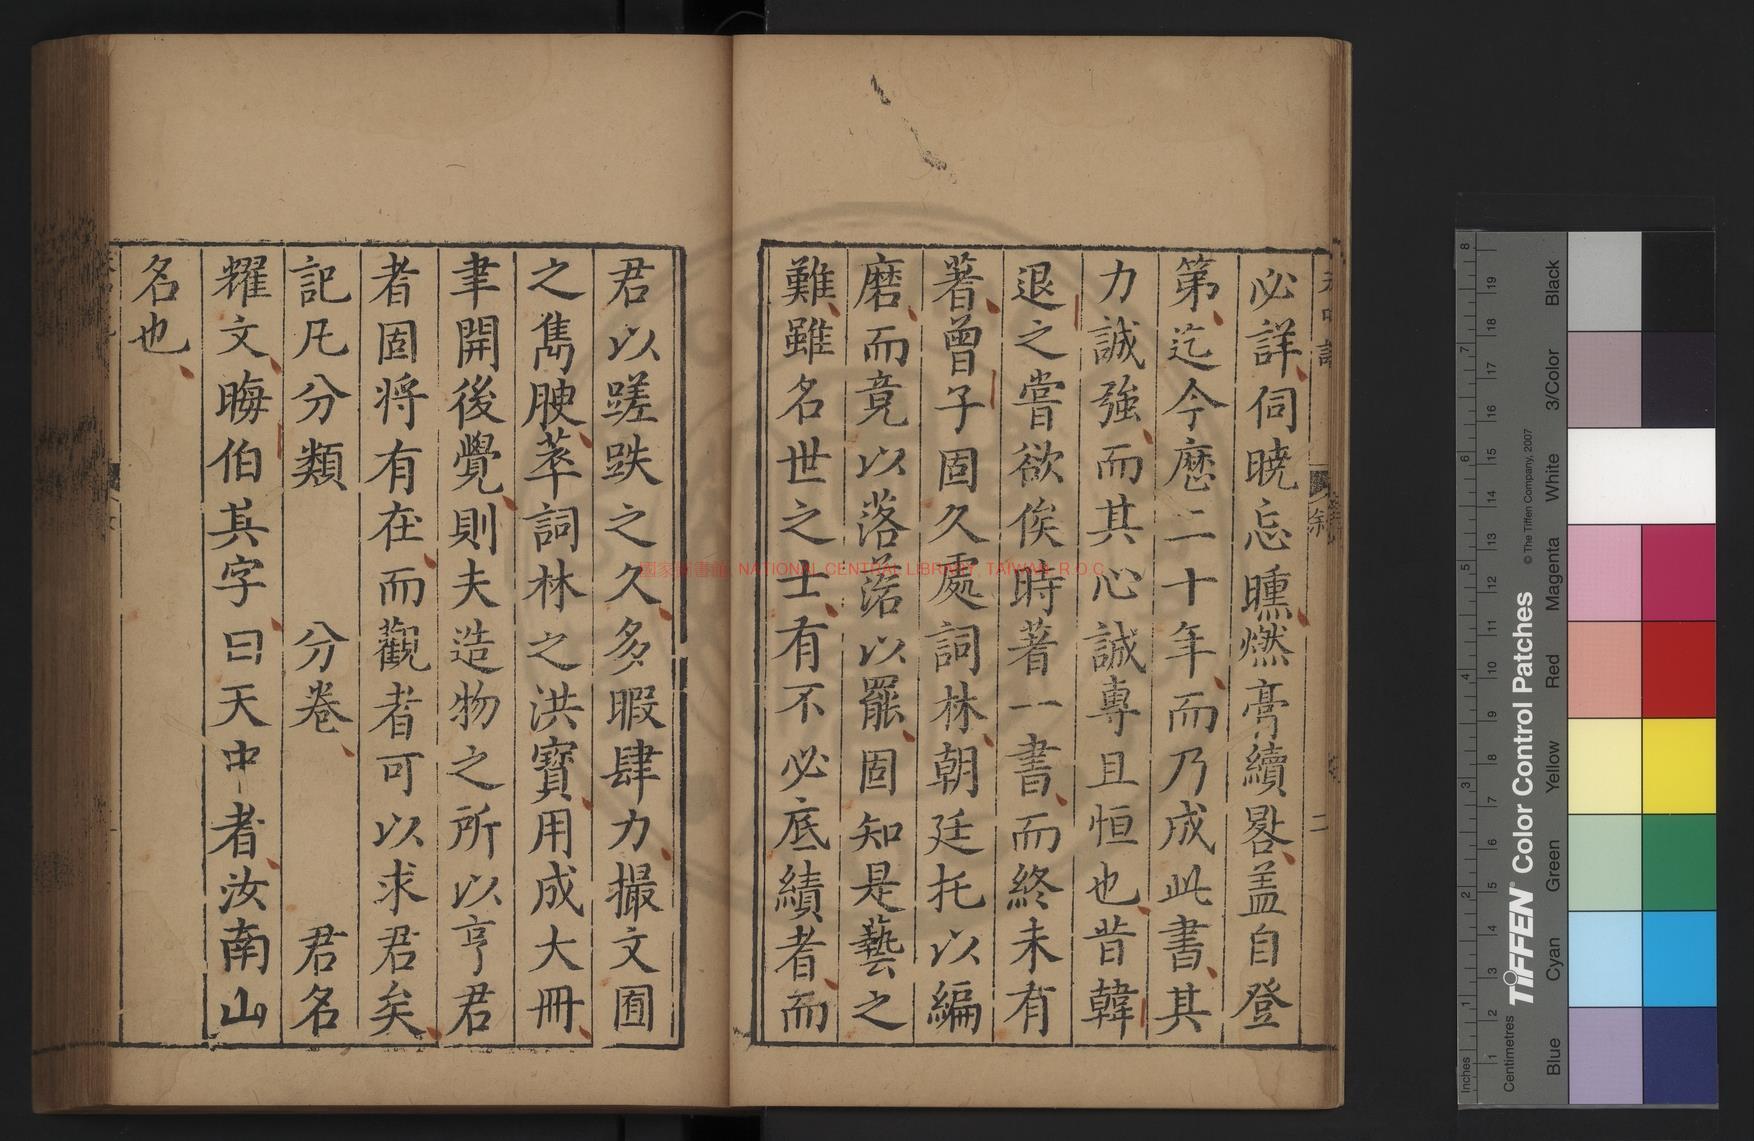 必詳伺曉忘曛燃膏續晷蓋自登
第迄今歷二十年而乃成此書其
力誠強而其心誠專且恒也昔韓
退之嘗欲俟時著一書而終未有
著曾子固久處詞林朝廷托以編
磨而竟以落落以罷固知是藝之
難雖名世之士有不必底績者而
君以蹉跌之久多暇肆力撮文囿
之雋腴萃詞林之洪寶用成大冊
聿開後覺則夫造物之所以亨君
者固將有在而觀者可以求君矣
記凡分類 分卷 君名
耀文晦伯其字曰天中者汝南山
名也
國家圖書館 NATIONAL CENTRAL LIBRARY, TAIWAN, R.O.C
Inches
Centimetres
TIFFEN Color Control Patches
© The Tiffen Company, 2007
Blue
Cyan
Green
Yellow
Red
Magenta
White
3/Color
Black